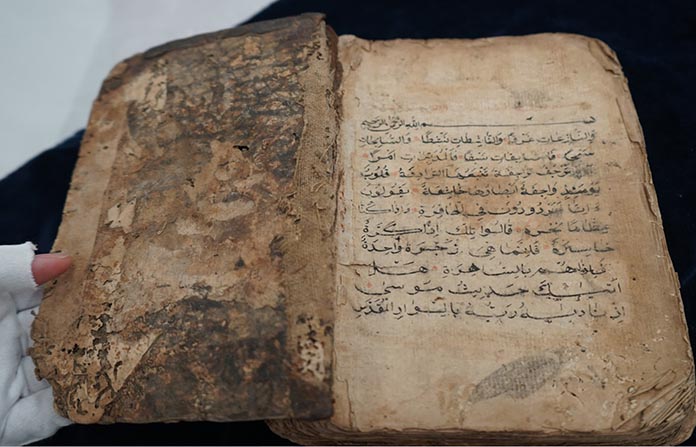 بسم الله الرحمن الرحيم
والنازعات غرقا والناشطات نشطا والسابحات
سبحا فالسابقات سبقا فالمدبرات امرا
يوم ترجف الراجفة تتبعها الرادفة قلوب
يومئذ واجفة ابصارها خاشعة يقولون
ءانا لمردودون في الحافرة ءاذا كنا
عظاما نخرة قالوا تلك اذا كرة
خاسرة فانما هي زجرة واحدة
فاذا هم بالساهرة هل
اتيك حديث موسى
اذ ناديه ربه بالواد المقدس